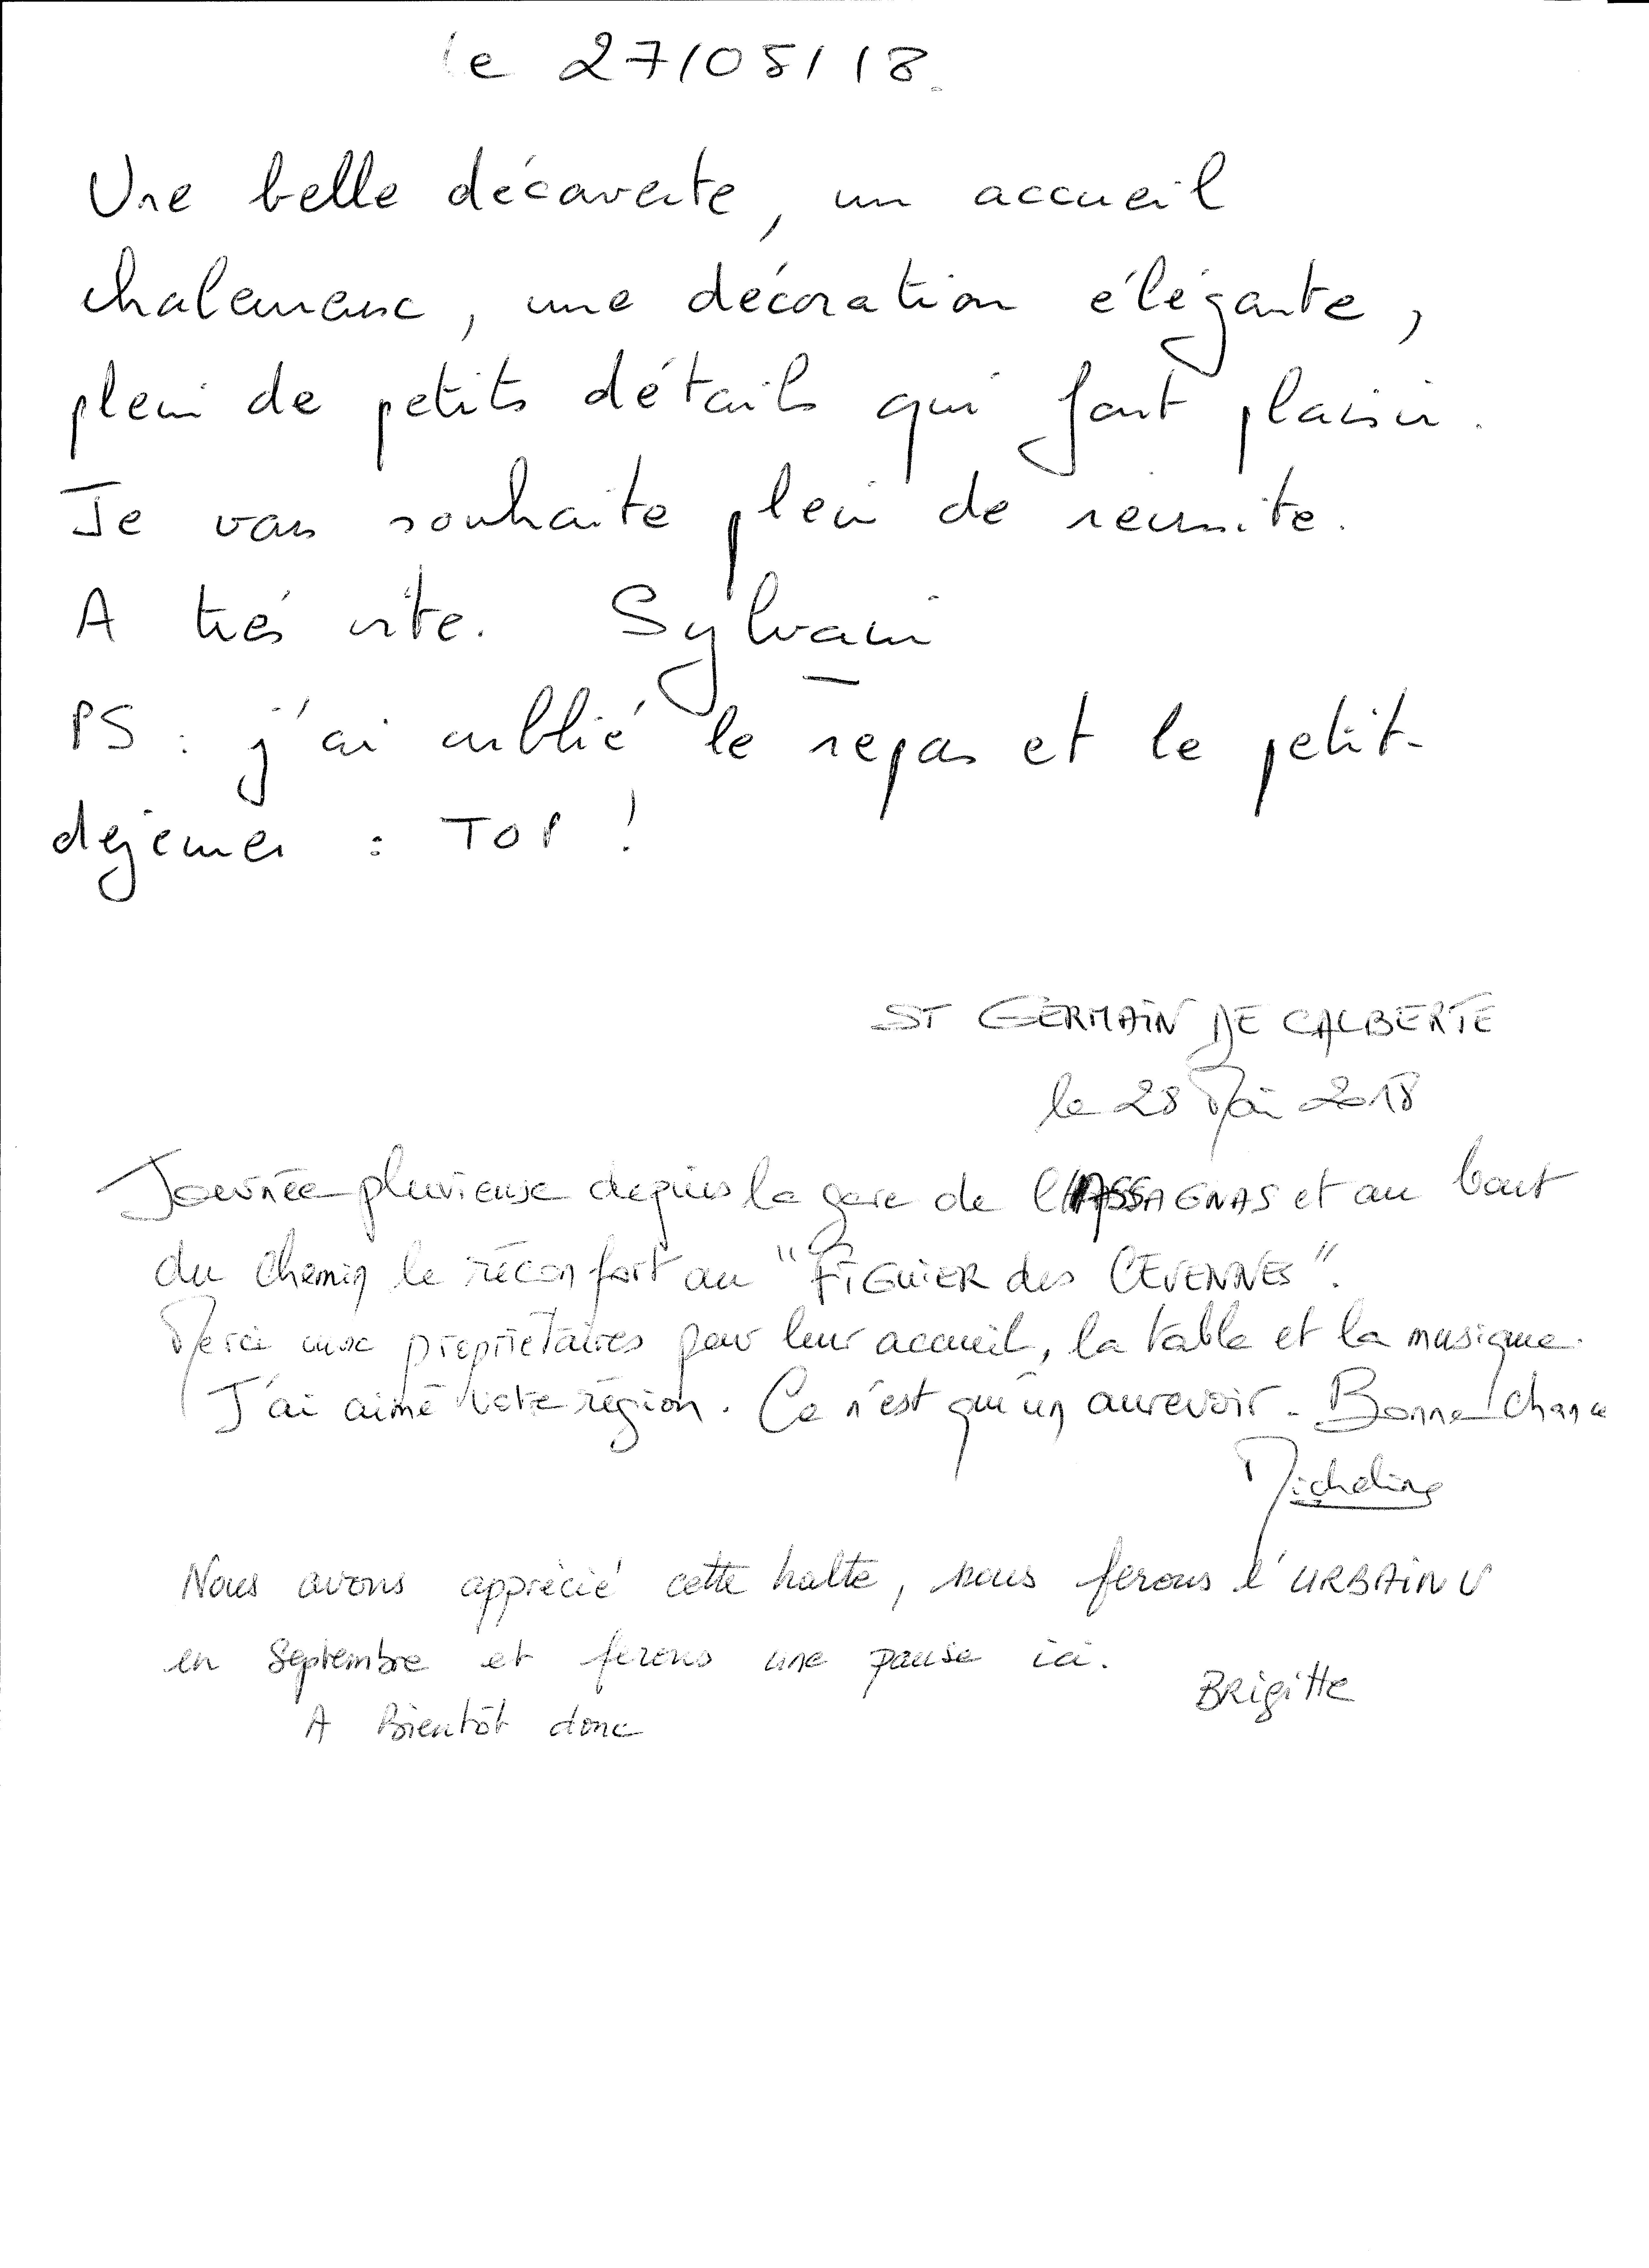 le 27/05/18.
Une belle découverte, un accueil
chaleureux, une décoration élégante,
plein de petits détails qui font plaisir.
Je vous souhaite plein de reussite.
A très vite. Sylvain
PS : j'ai oublié le repas et le petit-
dejeuner : TOP !
ST GERMAIN DE CALBERTE
le 28 Mai 2018
Journée pluvieuse depuis la gare de CASSAGNAS et au bout
du chemin le réconfort au "FIGUIER des CEVENNES".
Merci aux propriétaires pour leur accueil, la table et la musique.
J'ai aimé votre région. Ce n'est qu'un aurevoir. Bonne chance
Micheline
Nous avons apprécié cette halte, nous ferons l'URBAIN V
en Septembre et ferons une pause ici.
Brigitte
A Bientôt donc